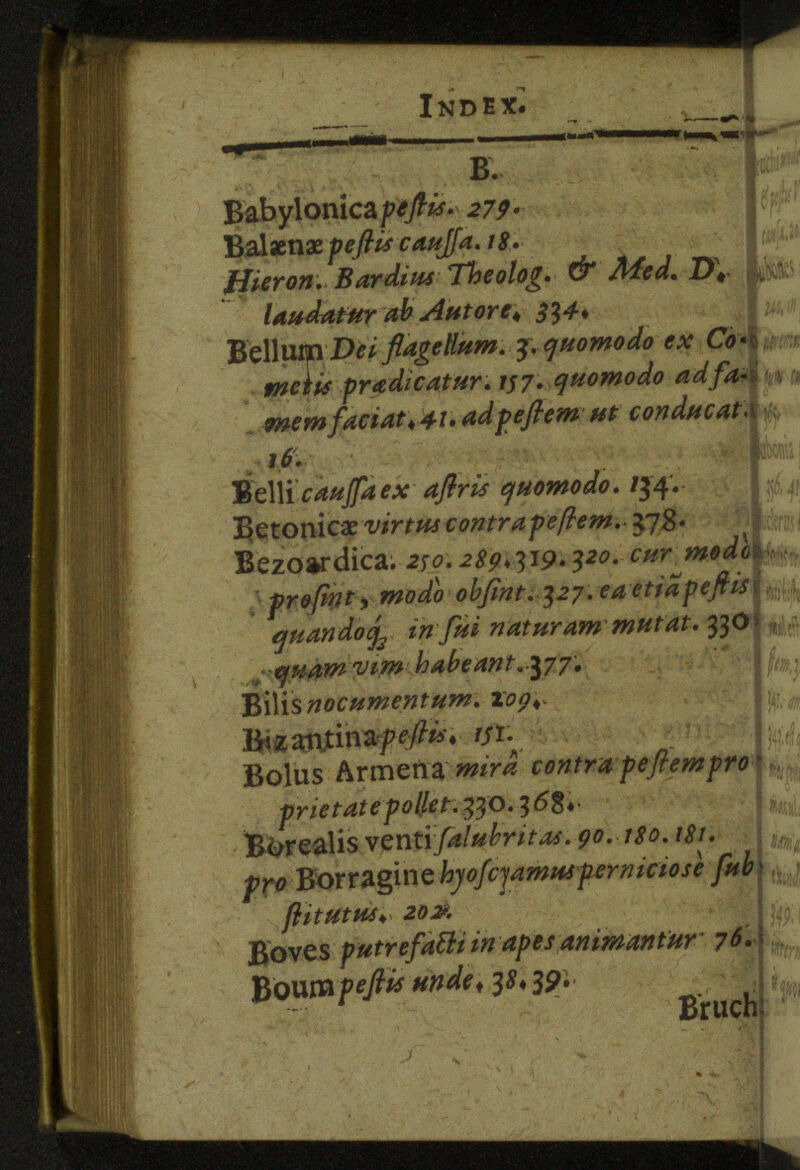 INDEX.
B.
Babylonica peſtis. 279.
Balænæ peſtis cauſſa. 18.
Hieron. Bardius Theolog. & Med. D.
laudatur ab Autore, 334.
Bellum Dei flagellum. 3. quomodo ex Co-
metis prædicatur. 157. quomodo ad fa-
mem faciat, 41. ad peſtem ut conducat
16.
Belli cauſſa ex aſtris quomodo. 134.
Betonicæ virtus contra peſtem. 378.
Bezoardica. 250. 289. 319. 320. cur modò
proſint, modò obſint. 327. ea etiā peſtis
quandoq; in ſui naturam mutat. 330
quàm vim habeant. 377.
Bilis nocumentum. 209.
Bizantina peſtis. 151.
Bolus Armena mirâ contra peſtem pro
prietate pollet. 330. 368.
Borealis venti ſalubritas. 90. 180. 181.
pro Borragine hyoſcyamus pernicioſè ſub
ſtitutus. 202.
Boves putrefacti in apes animantur 76.
Boum peſtis unde, 38. 39.
Bruchi